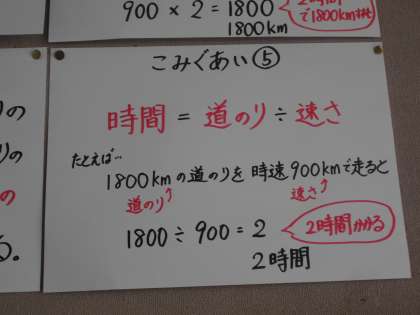 900 × 2 = 1800
1800km
で1800km進む
こみぐあい⑤
時間 = 道のり ÷ 速さ
たとえば…
1800kmの道のりを 時速900kmで走ると
道のり
速さ
1800 ÷ 900 = 2
2時間かかる
2時間